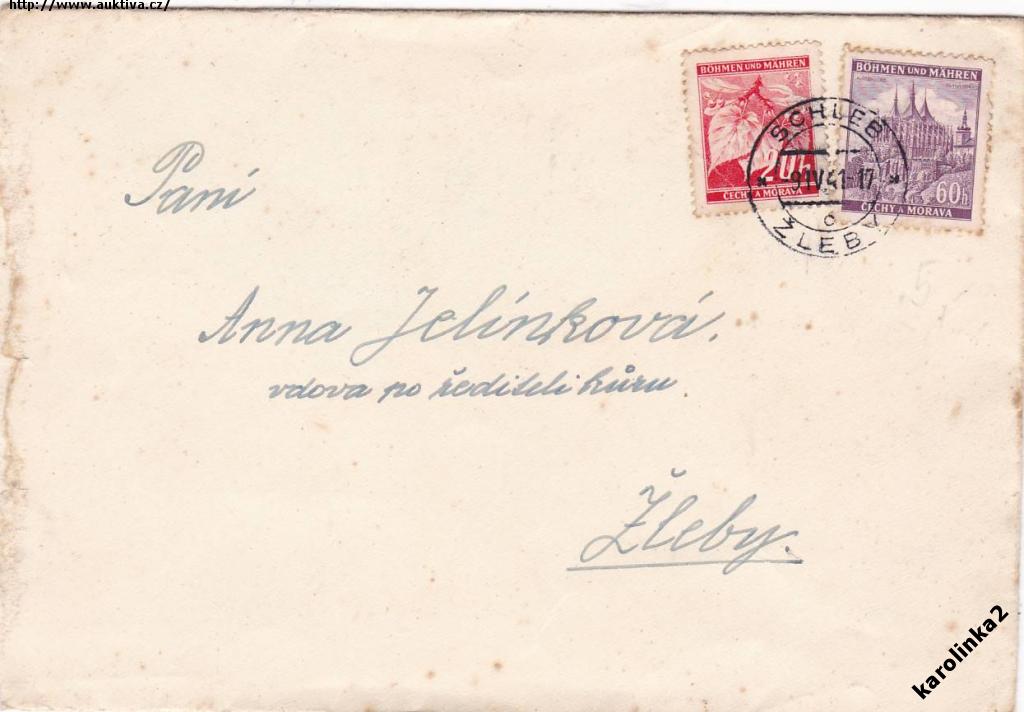 http://www.auktiva.cz/
BÖHMEN UND MÄHREN
20h
ČECHY A MORAVA
BÖHMEN UND MÄHREN
60h
ČECHY A MORAVA
SCHLEB
9IV41-17
ŽLEBY
Paní
Anna Jelínková.
vdova po řediteli kůru.
Žleby.
karolinka2